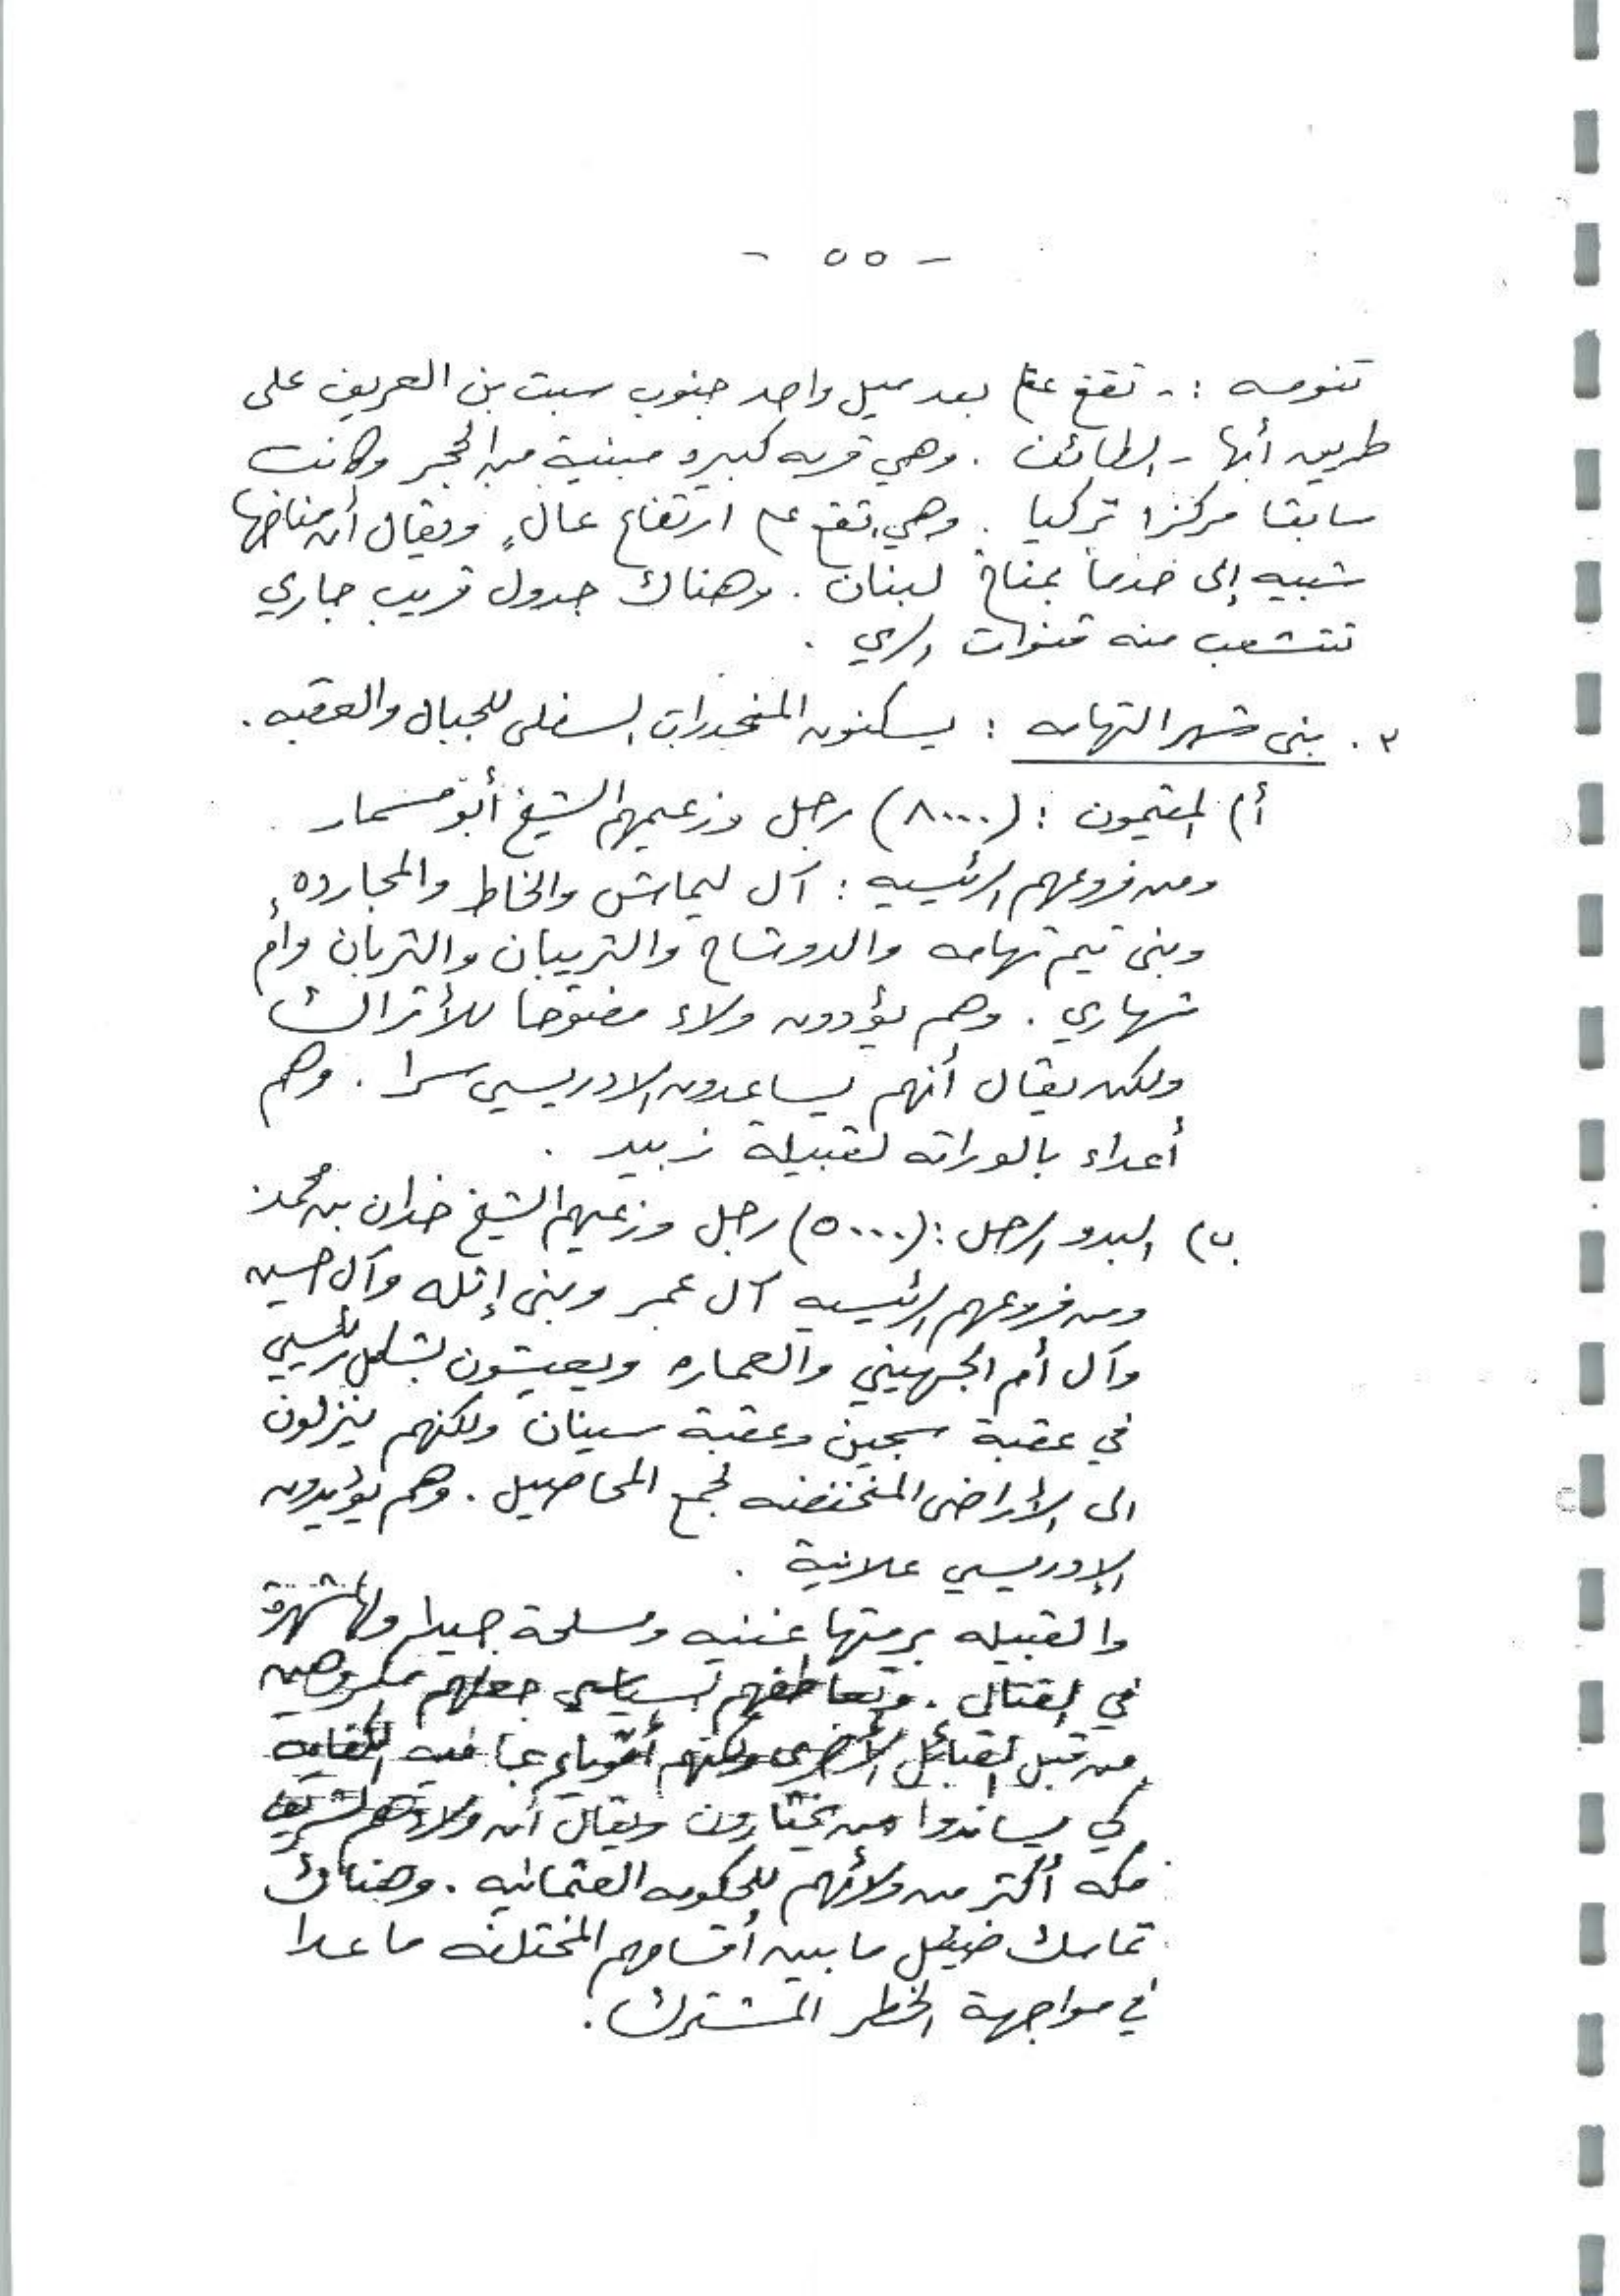 - ٥٥ -
تنومه :- تقع على بعد ميل واحد جنوب سبت بن العريف على
طريق أبها - الطائف . وهي قريه كبيره مبنية من الحجر وكانت
سابقا مركزا تركيا . وهي تقع على ارتفاع عالٍ ويقال أن مناخها
شبيه إلى حدما بمناخ لبنان . وهناك جدول قريب جاري
تتشعب منه قنوات الري .
٣ . بنى شهر التهامه : يسكنون المنحدرات السفلى للجبال والعقبه .
أ) المقيمون : (٨٠٠٠) رجل وزعيمهم الشيخ أبو مسمار .
ومن فروعهم الرئيسيه : آل ليماش والخاط والمجارده
وبنى تيم تهامه والدوشاح والتريبان والتربان وأم
شهاري . وهم يؤدون ولاء مفتوحا للأتراك
ولكن يقال أنهم يساعدون الادريسي سرا . وهم
أعداء بالوراثه لقبيلة زبيد .
ب) البدو الرحل : (٥٠٠٠) رجل وزعيمهم الشيخ خدان بن محمد
ومن فروعهم الرئيسيه آل عمر وبنى إثله وآل حسين
وآل أم الجهيني والعماره ويعيشون بشكل رئيسي
في عقبة سجين وعقبة سينان ولكنهم ينزلون
الى الأراضى المنخفضه لجمع المحاصيل . وهم يؤيدون
الإدريسي علانية .
والقبيله برمتها غنيه ومسلحة جيدا ولها شهرة
في القتال . وتعاطفهم السياسي جعلهم مكروهين
من قبل القبائل الأخرى ولكنهم أقوياء بما فيه الكفايه
كي يساندوا من يختارون ويقال أن ولاءهم لشريف
مكه أكثر من ولائهم للحكومه العثمانيه . وهناك
تماسك ضئيل ما بين أقسامهم المختلفه ما عدا
في مواجهة الخطر المشترك .